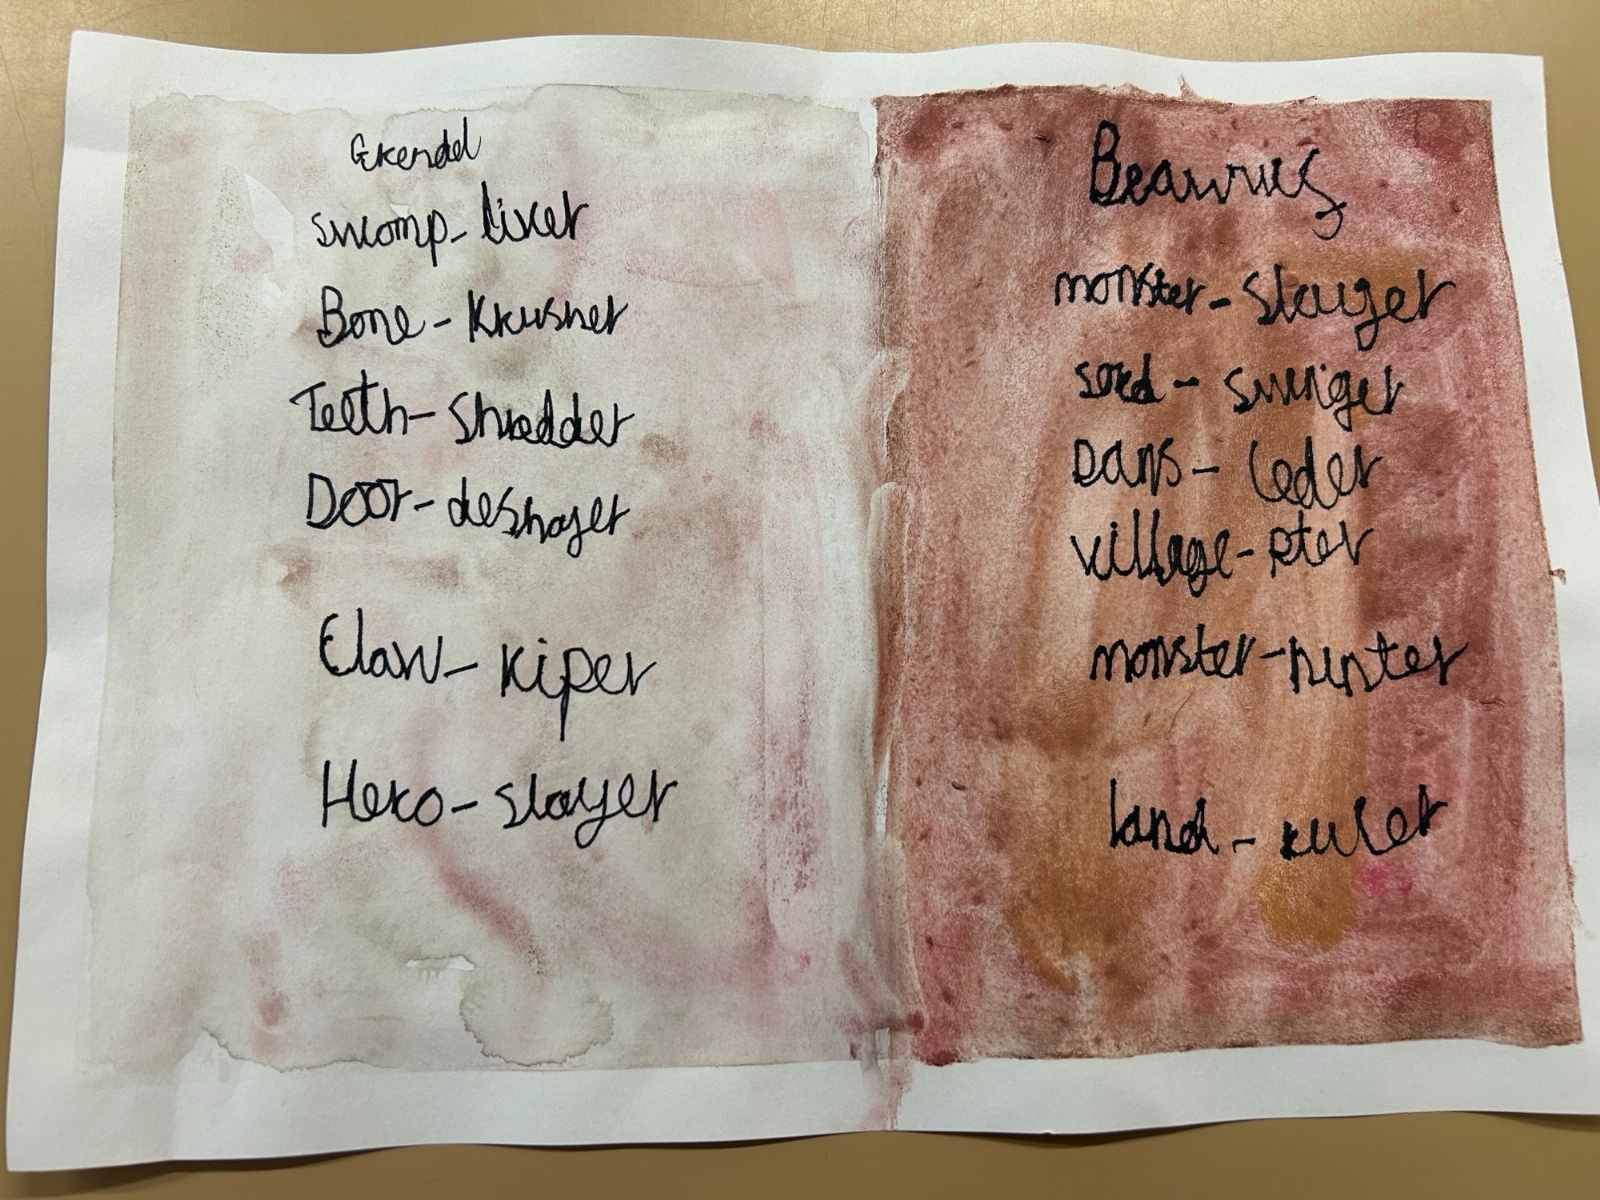 Grendel
swomp-liver
Bone-Krusher
Teeth-Shredder
Door-deshoyer
Claw-riper
Hero-slayer
Beawulf
monster-slayer
sord-swinger
Dans-leder
village-
monster-hunter
land-ruler